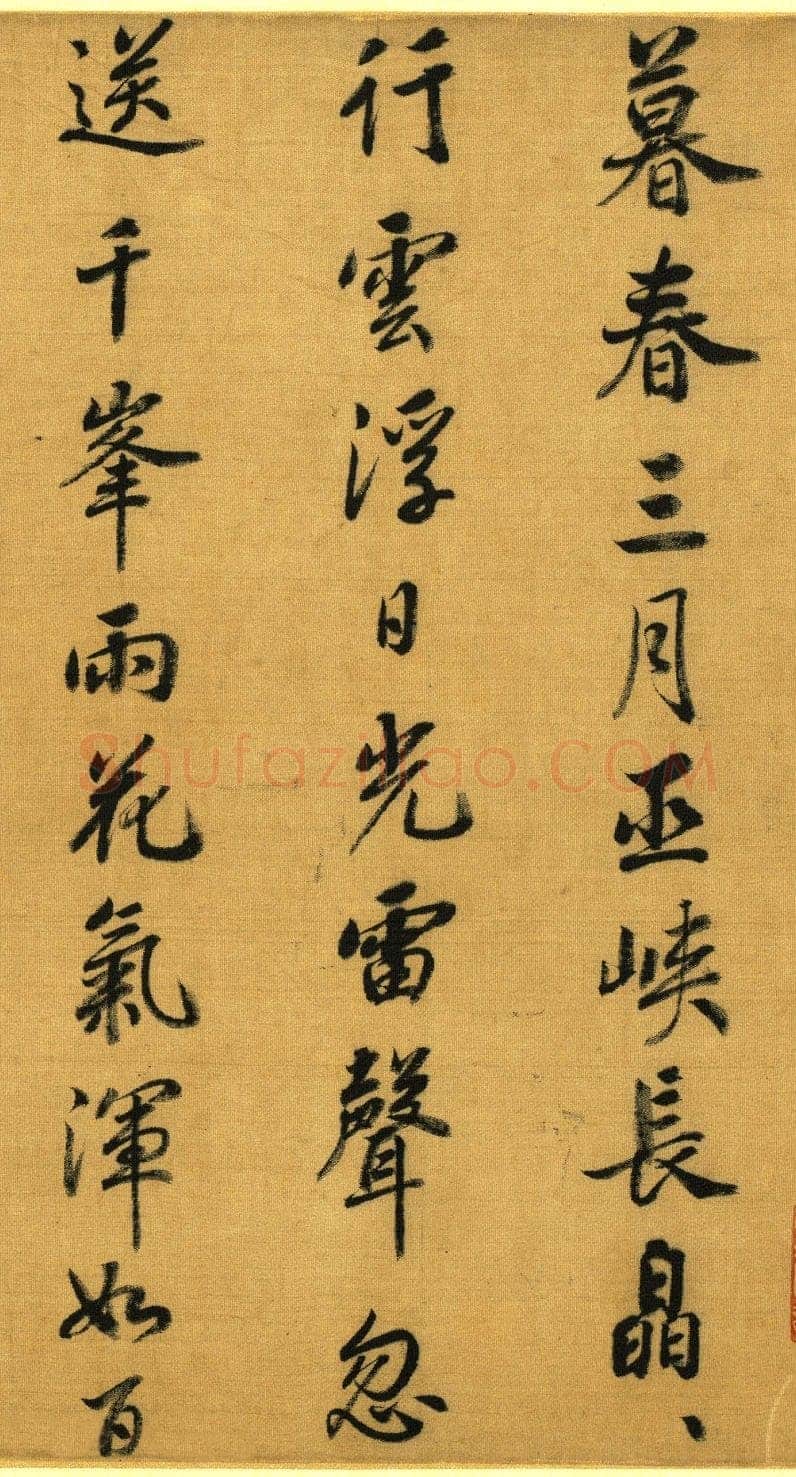 暮春三月巫峡長晶、
行雲浮日光雷聲忽
送千峯雨花氣渾如百
Shufaziliao.COM